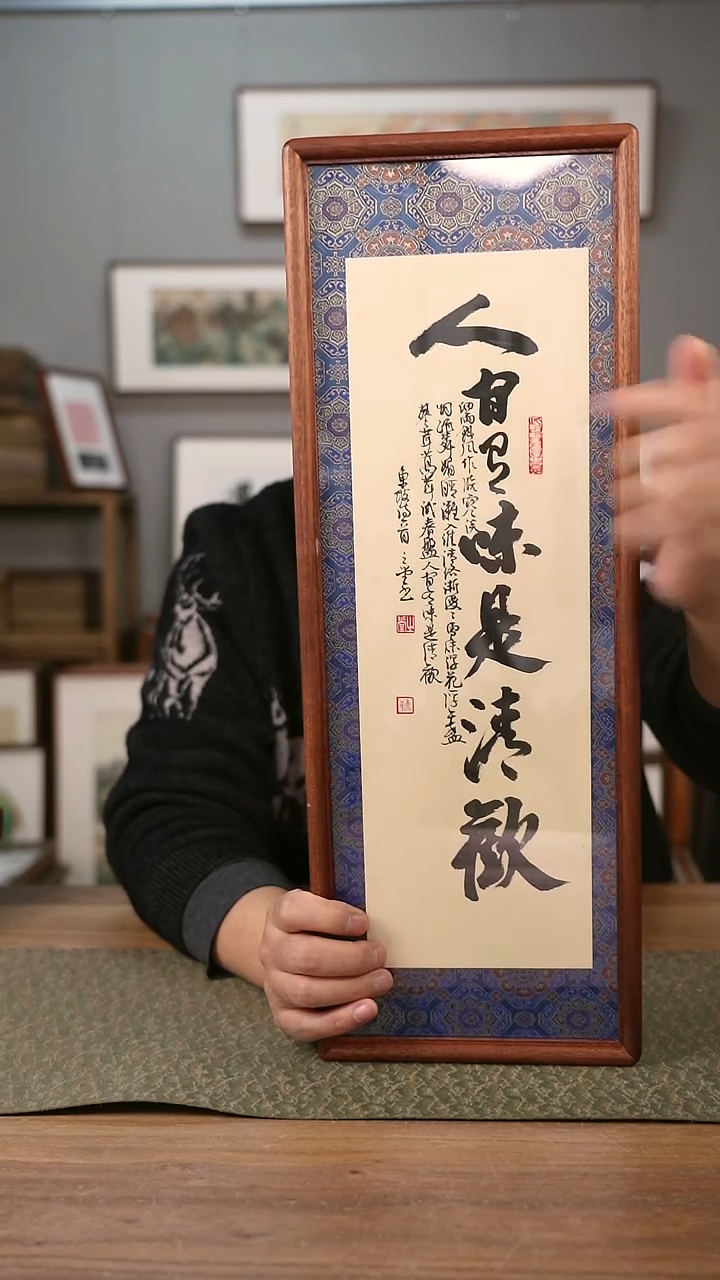 人間有味是清歡
細雨斜風作曉寒淡
烟疏柳媚晴灘入淮清洛漸漫漫雪沫乳花浮午盞
蓼茸蒿笋試春盤人間有味是清歡
東坡詞一首